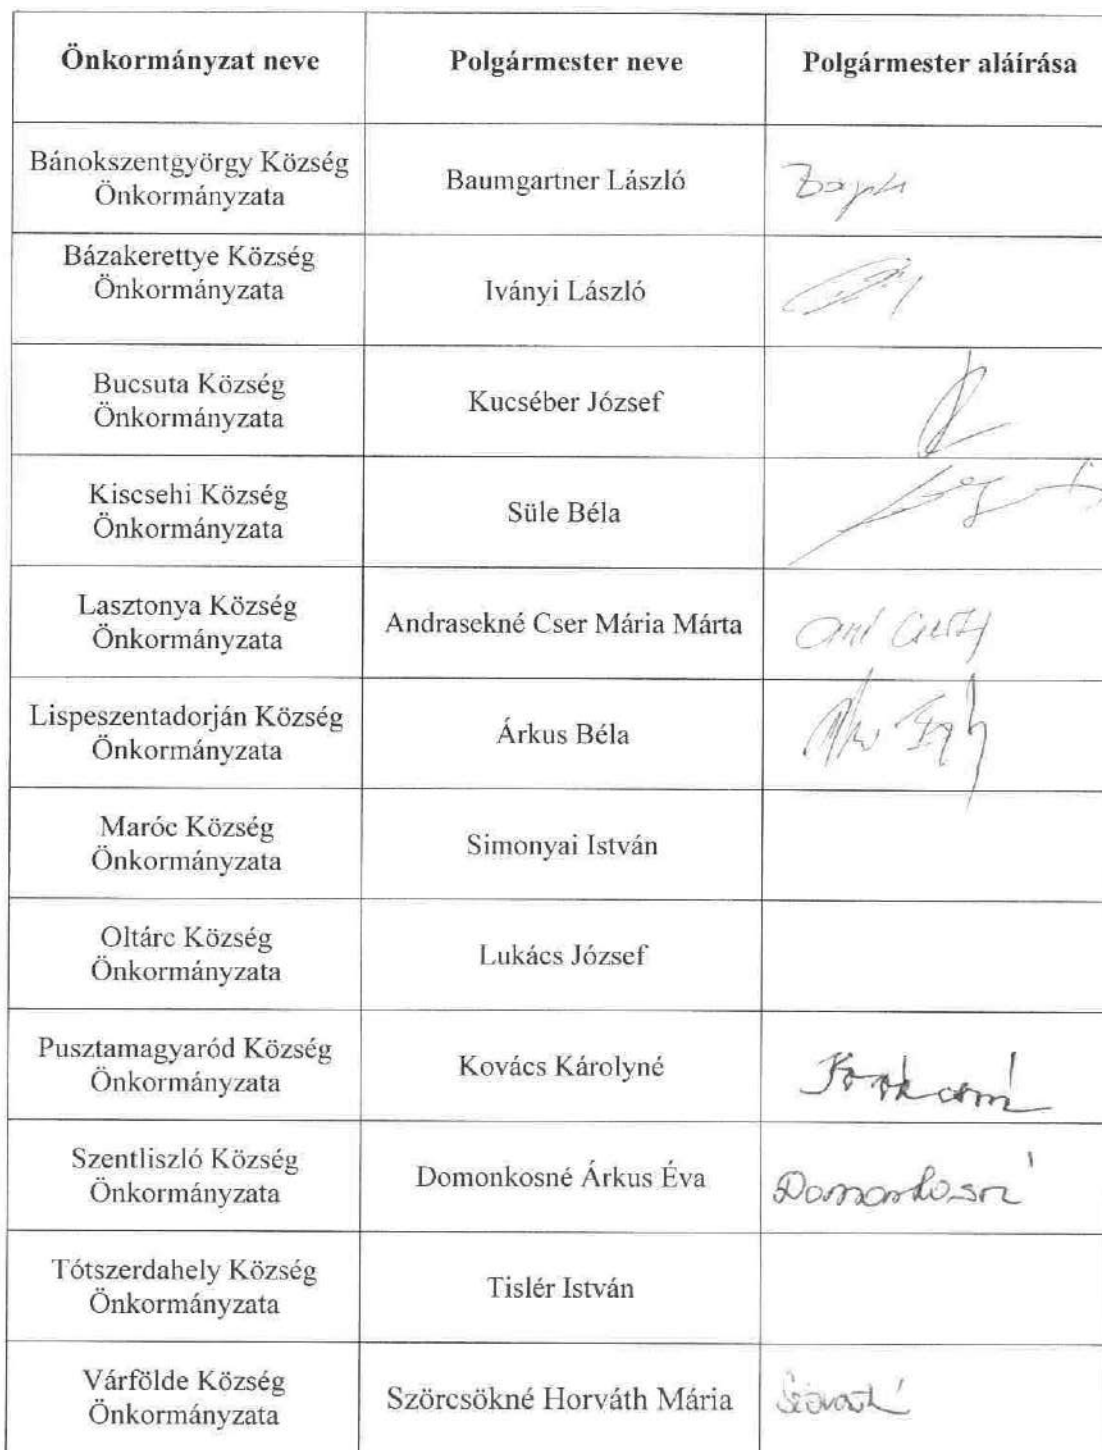 Önkormányzat neve
Polgármester neve
Polgármester aláírása
Bánokszentgyörgy Község
Önkormányzata
Baumgartner László
Bázakerettye Község
Önkormányzata
Iványi László
Bucsuta Község
Önkormányzata
Kucséber József
Kiscsehi Község
Önkormányzata
Süle Béla
Lasztonya Község
Önkormányzata
Andrasekné Cser Mária Márta
Lispeszentadorján Község
Önkormányzata
Árkus Béla
Maróc Község
Önkormányzata
Simonyai István
Oltárc Község
Önkormányzata
Lukács József
Pusztamagyaród Község
Önkormányzata
Kovács Károlyné
Szentliszló Község
Önkormányzata
Domonkosné Árkus Éva
Domonkosné
Tótszerdahely Község
Önkormányzata
Tislér István
Várfölde Község
Önkormányzata
Szörcsökné Horváth Mária